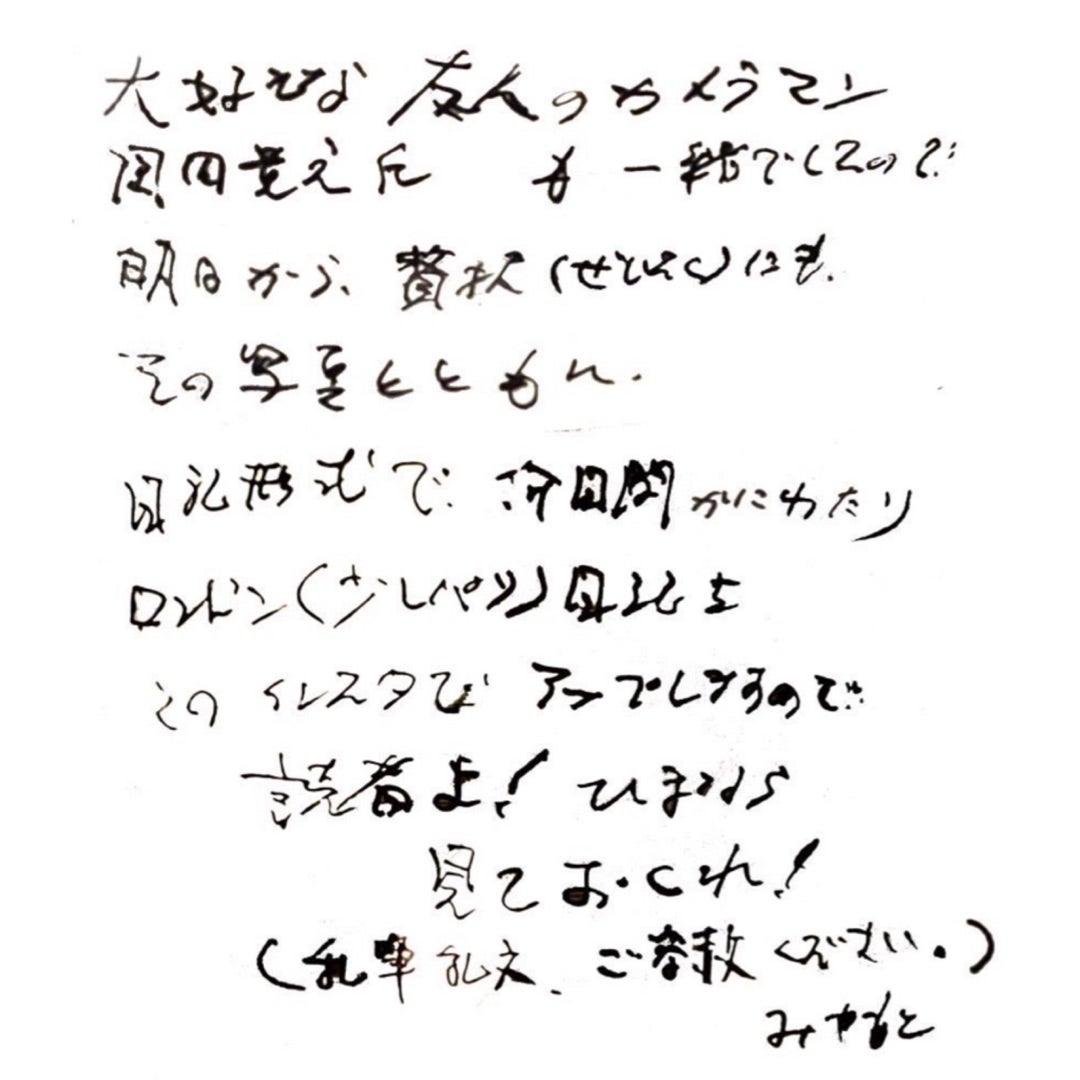 大好きな 友人のカメラマン
氏 も 一緒でしたので
明日から、贅沢(せいたく)にも、
その写真とともに、
日記形式で、 間 にわたり
ロンドン(少しパリ)日記を
この インスタで アップしますので
読者よ! ひまなら
見ておくれ!
(乱筆乱文、ご容赦ください。)
みやもと